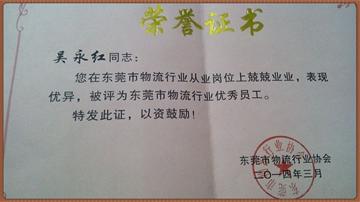 荣誉证书
吴永红同志：
您在东莞市物流行业从业岗位上兢兢业业，表现
优异，被评为东莞市物流行业优秀员工。
特发此证，以资鼓励！
东莞市物流行业协会
二〇一四年三月
东莞市物流行业协会